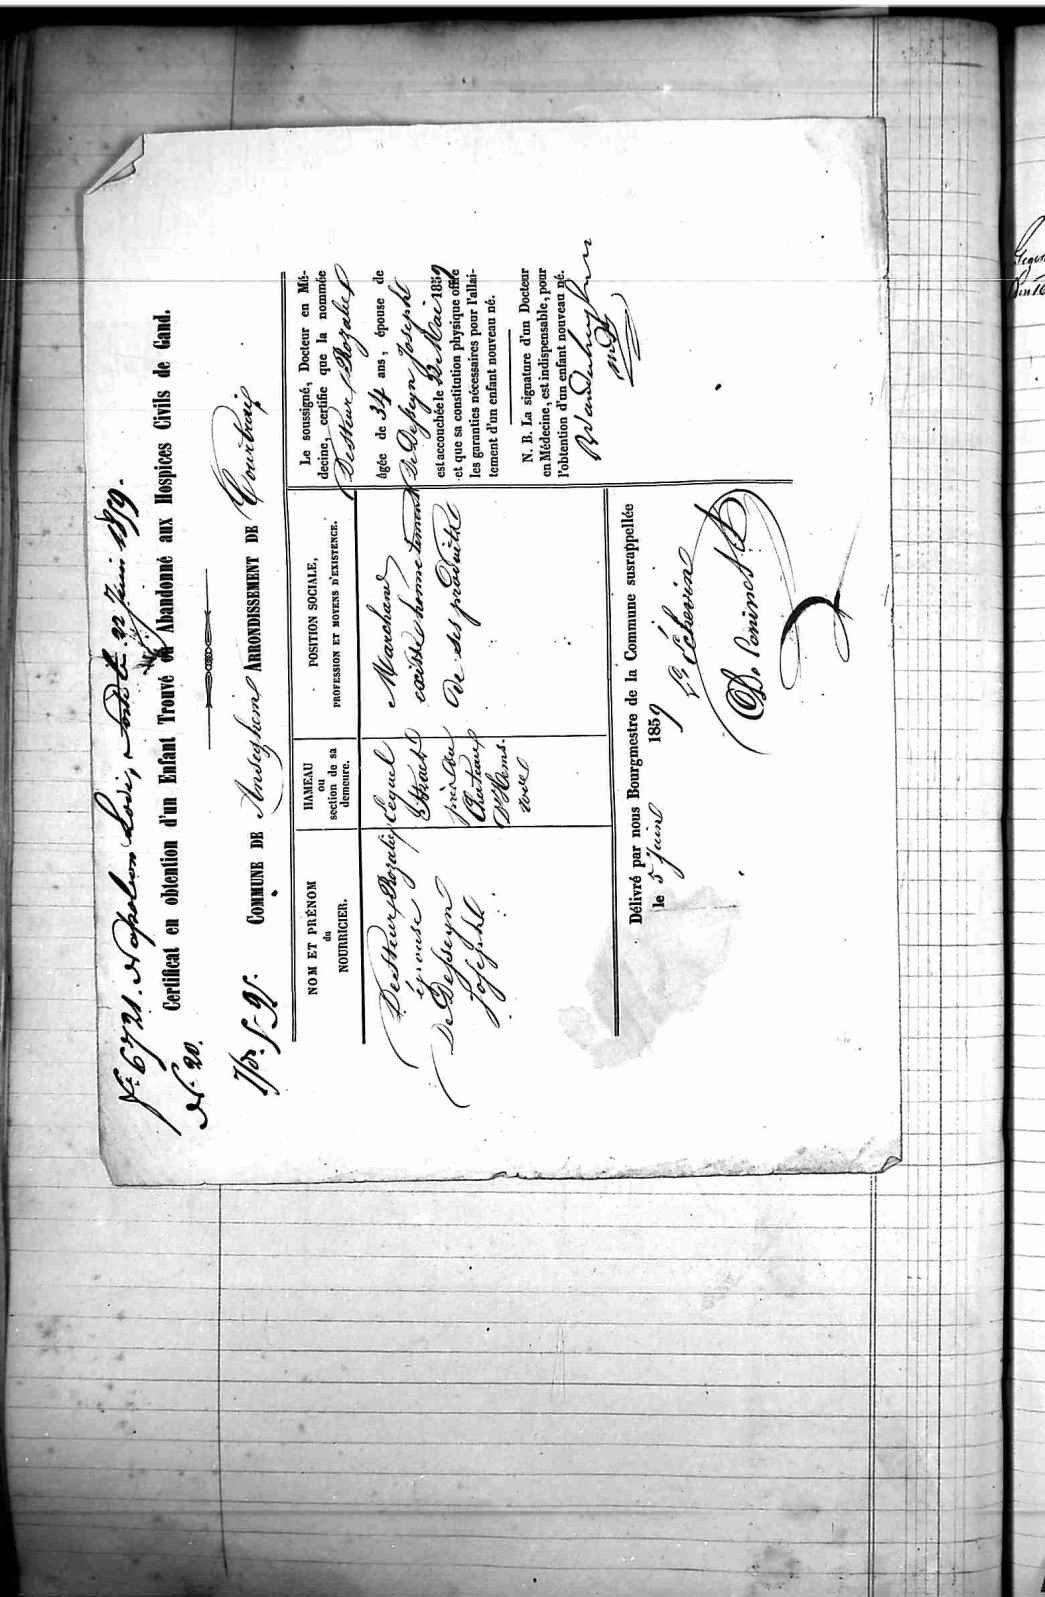 fo 6721. Napoléon Lodi, sorti le 22 Juin 1859.
Certificat en obtention d'un Enfant Trouvé ou Abandonné aux Hospices Civils de Gand.
No 20.
COMMUNE DE Anseghem ARRONDISSEMENT DE Courtrai
NOM ET PRÉNOM
du
NOURRICIER.
Desteur Rozalie
épouse
De Desseyn
Josephe
HAMEAU
ou
section de sa
demeure.
près du
Chateau
POSITION SOCIALE,
PROFESSION ET MOYENS D'EXISTENCE.
Marchand
existe honnetement
de ses produits
Le soussigné, Docteur en Mé-
decine, certifie que la nommée
Desteur Rozalie
âgée de 34 ans, épouse de
De Desseyn Josephe
est accouchée le 12 Mai 1859
et que sa constitution physique offre
les garanties nécessaires pour l'allai-
tement d'un enfant nouveau né.
N. B. La signature d'un Docteur
en Médecine, est indispensable, pour
l'obtention d'un enfant nouveau né.
Délivré par nous Bourgmestre de la Commune susrappellée
le 5 Juin 1859
L'échevin
De Coninck